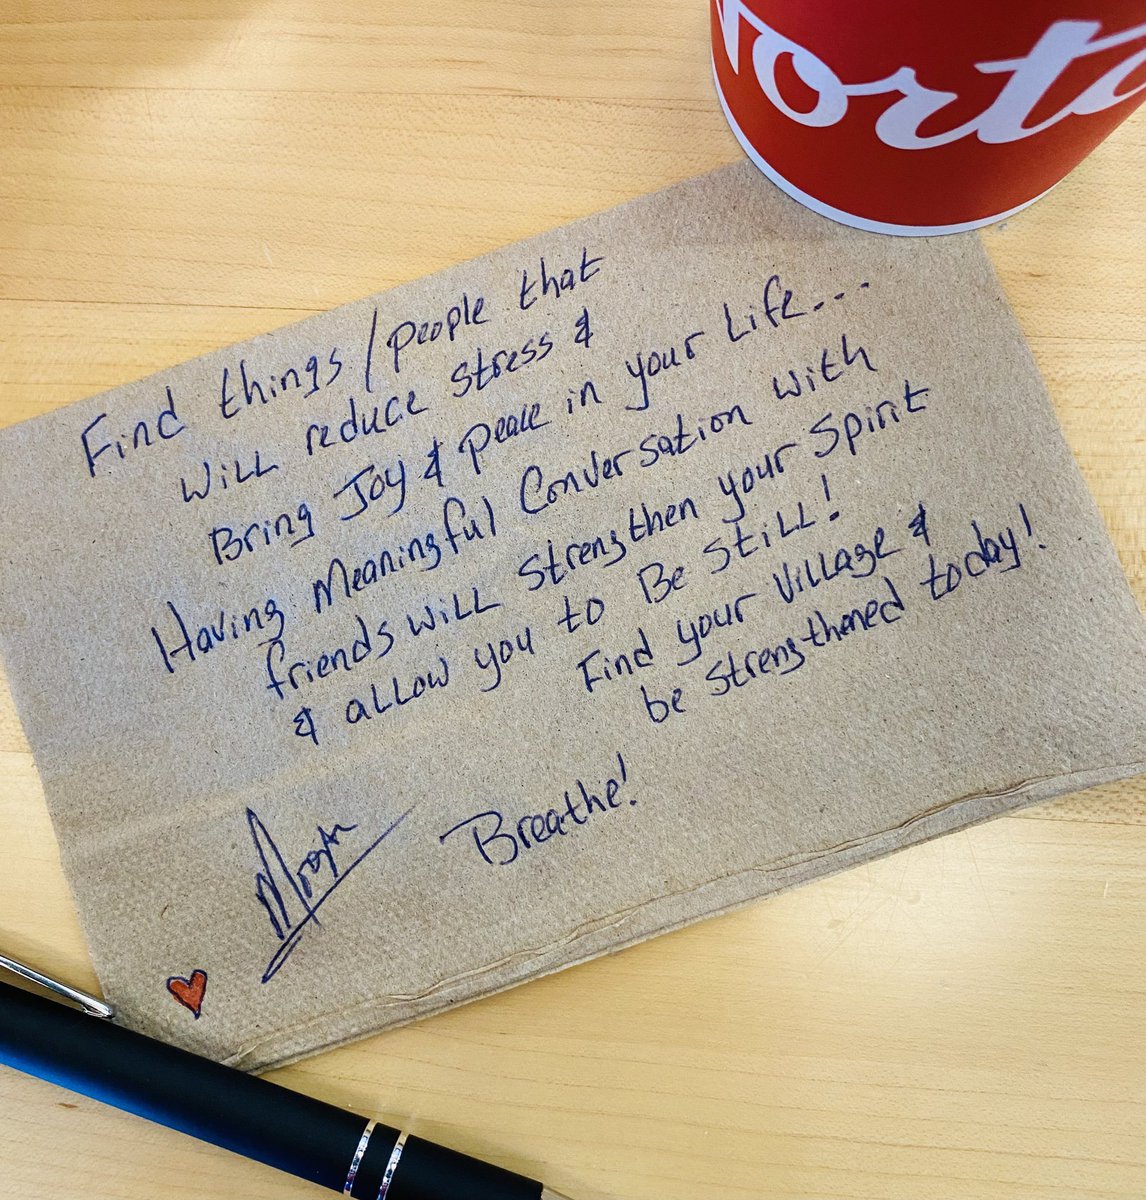 Find things/people that
will reduce stress &
Bring Joy & peace in your Life...
Having Meaningful Conversation with
friends will strengthen your Spirit
& allow you to Be still!
Find your Village &
be strengthened today!
Breathe!